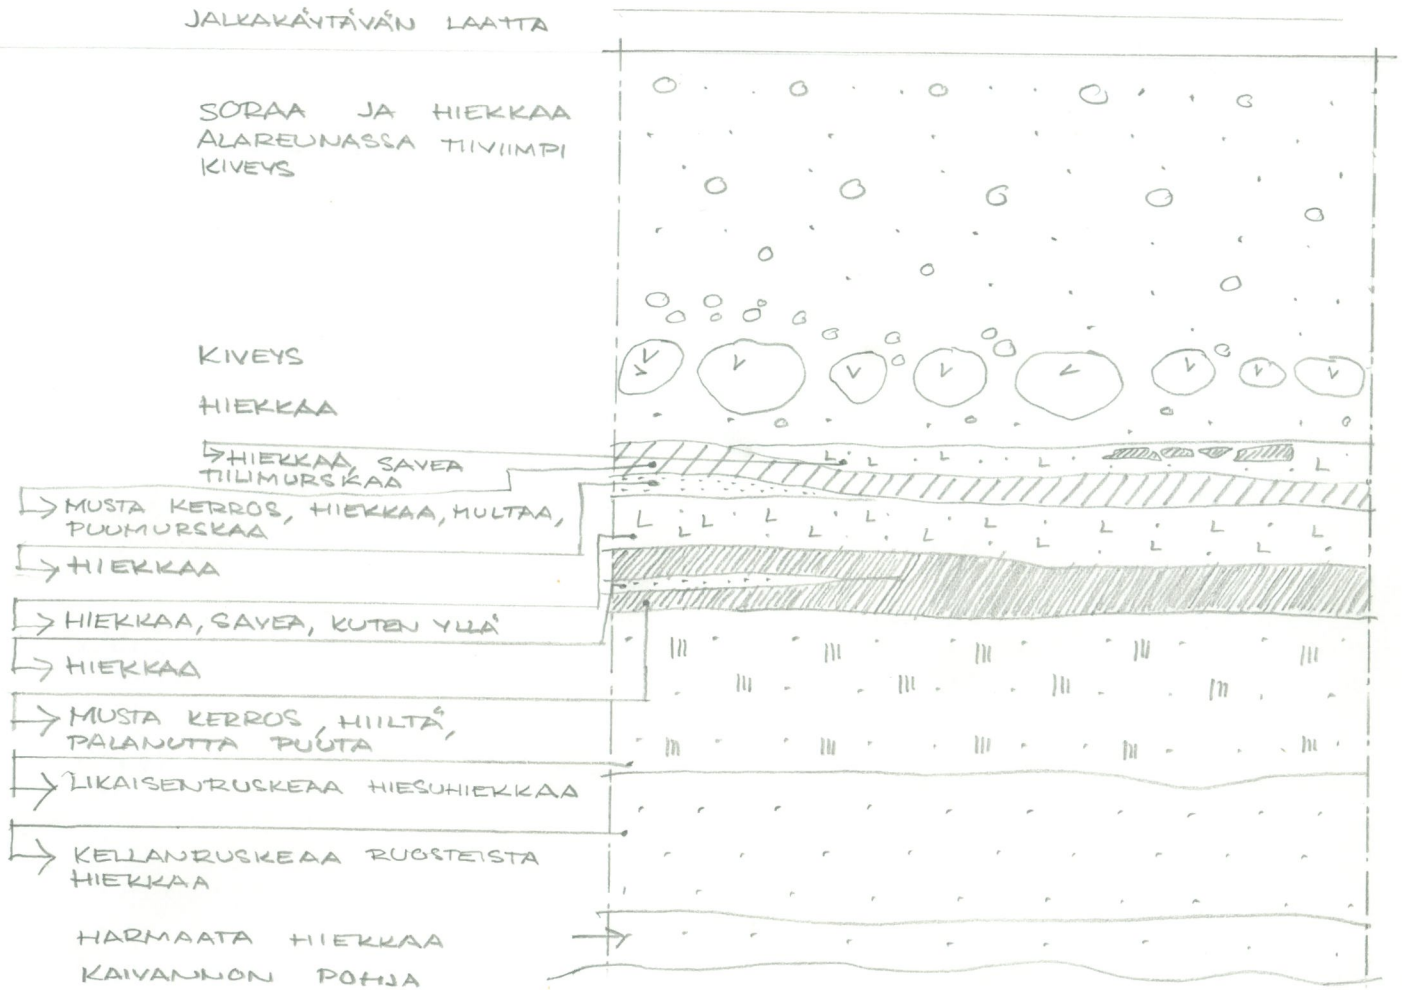 JALKAKÄYTÄVÄN LAATTA
SORAA JA HIEKKAA
ALAREUNASSA TIIVIIMPI
KIVEYS
KIVEYS
HIEKKAA
HIEKKAA, SAVEA
TIILIMURSKAA
MUSTA KERROS, HIEKKAA, MULTAA,
PUUMURSKAA
HIEKKAA
HIEKKAA, SAVEA, KUTEN YLLÄ
HIEKKAA
MUSTA KERROS, HIILTÄ,
PALANUTTA PUUTA
LIKAISENRUSKEAA HIESUHIEKKAA
KELLANRUSKEAA RUOSTEISTA
HIEKKAA
HARMAATA HIEKKAA
KAIVANNON POHJA